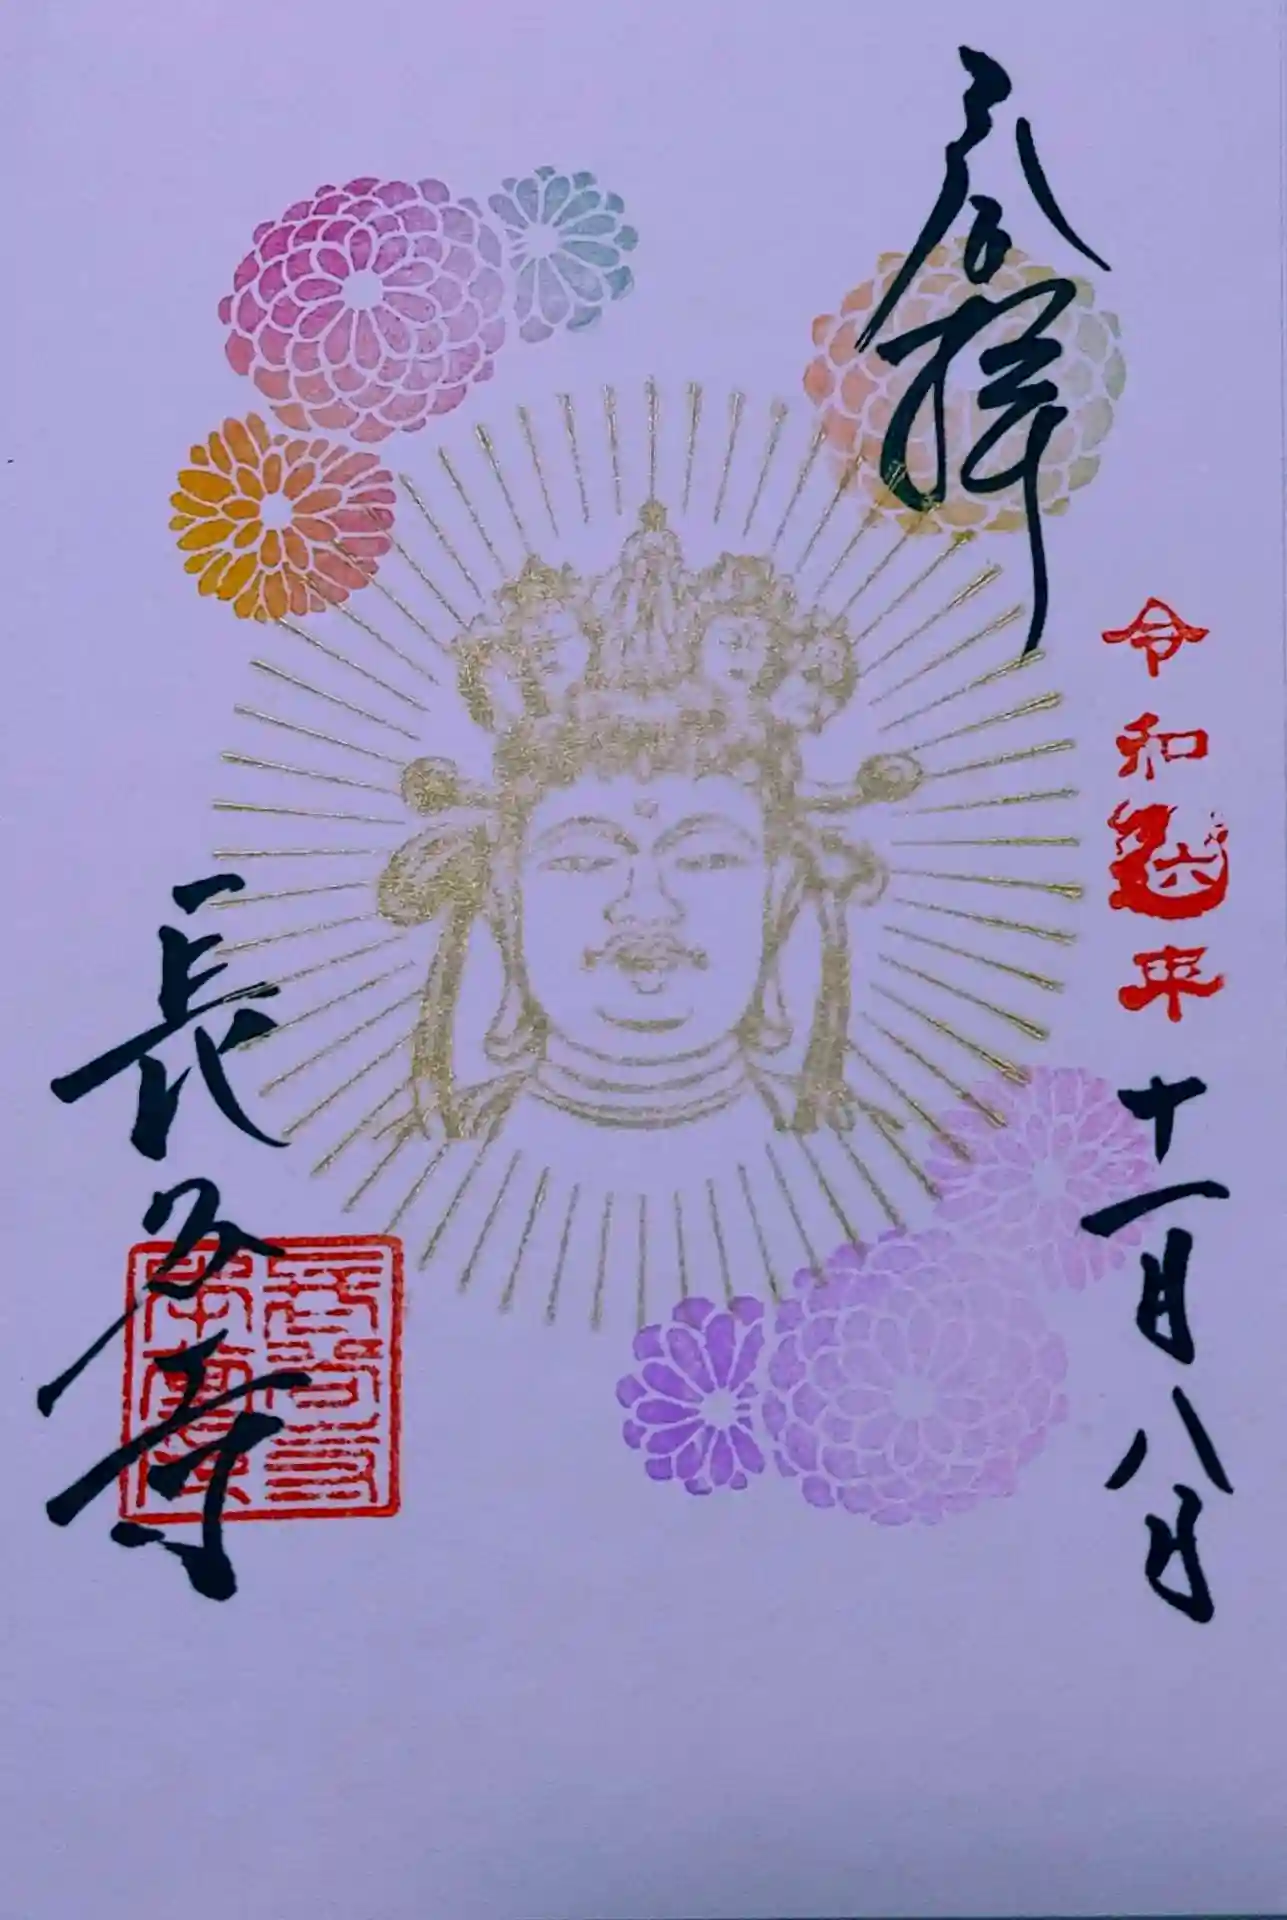 奉拝
令和六年十一月八日
長谷寺